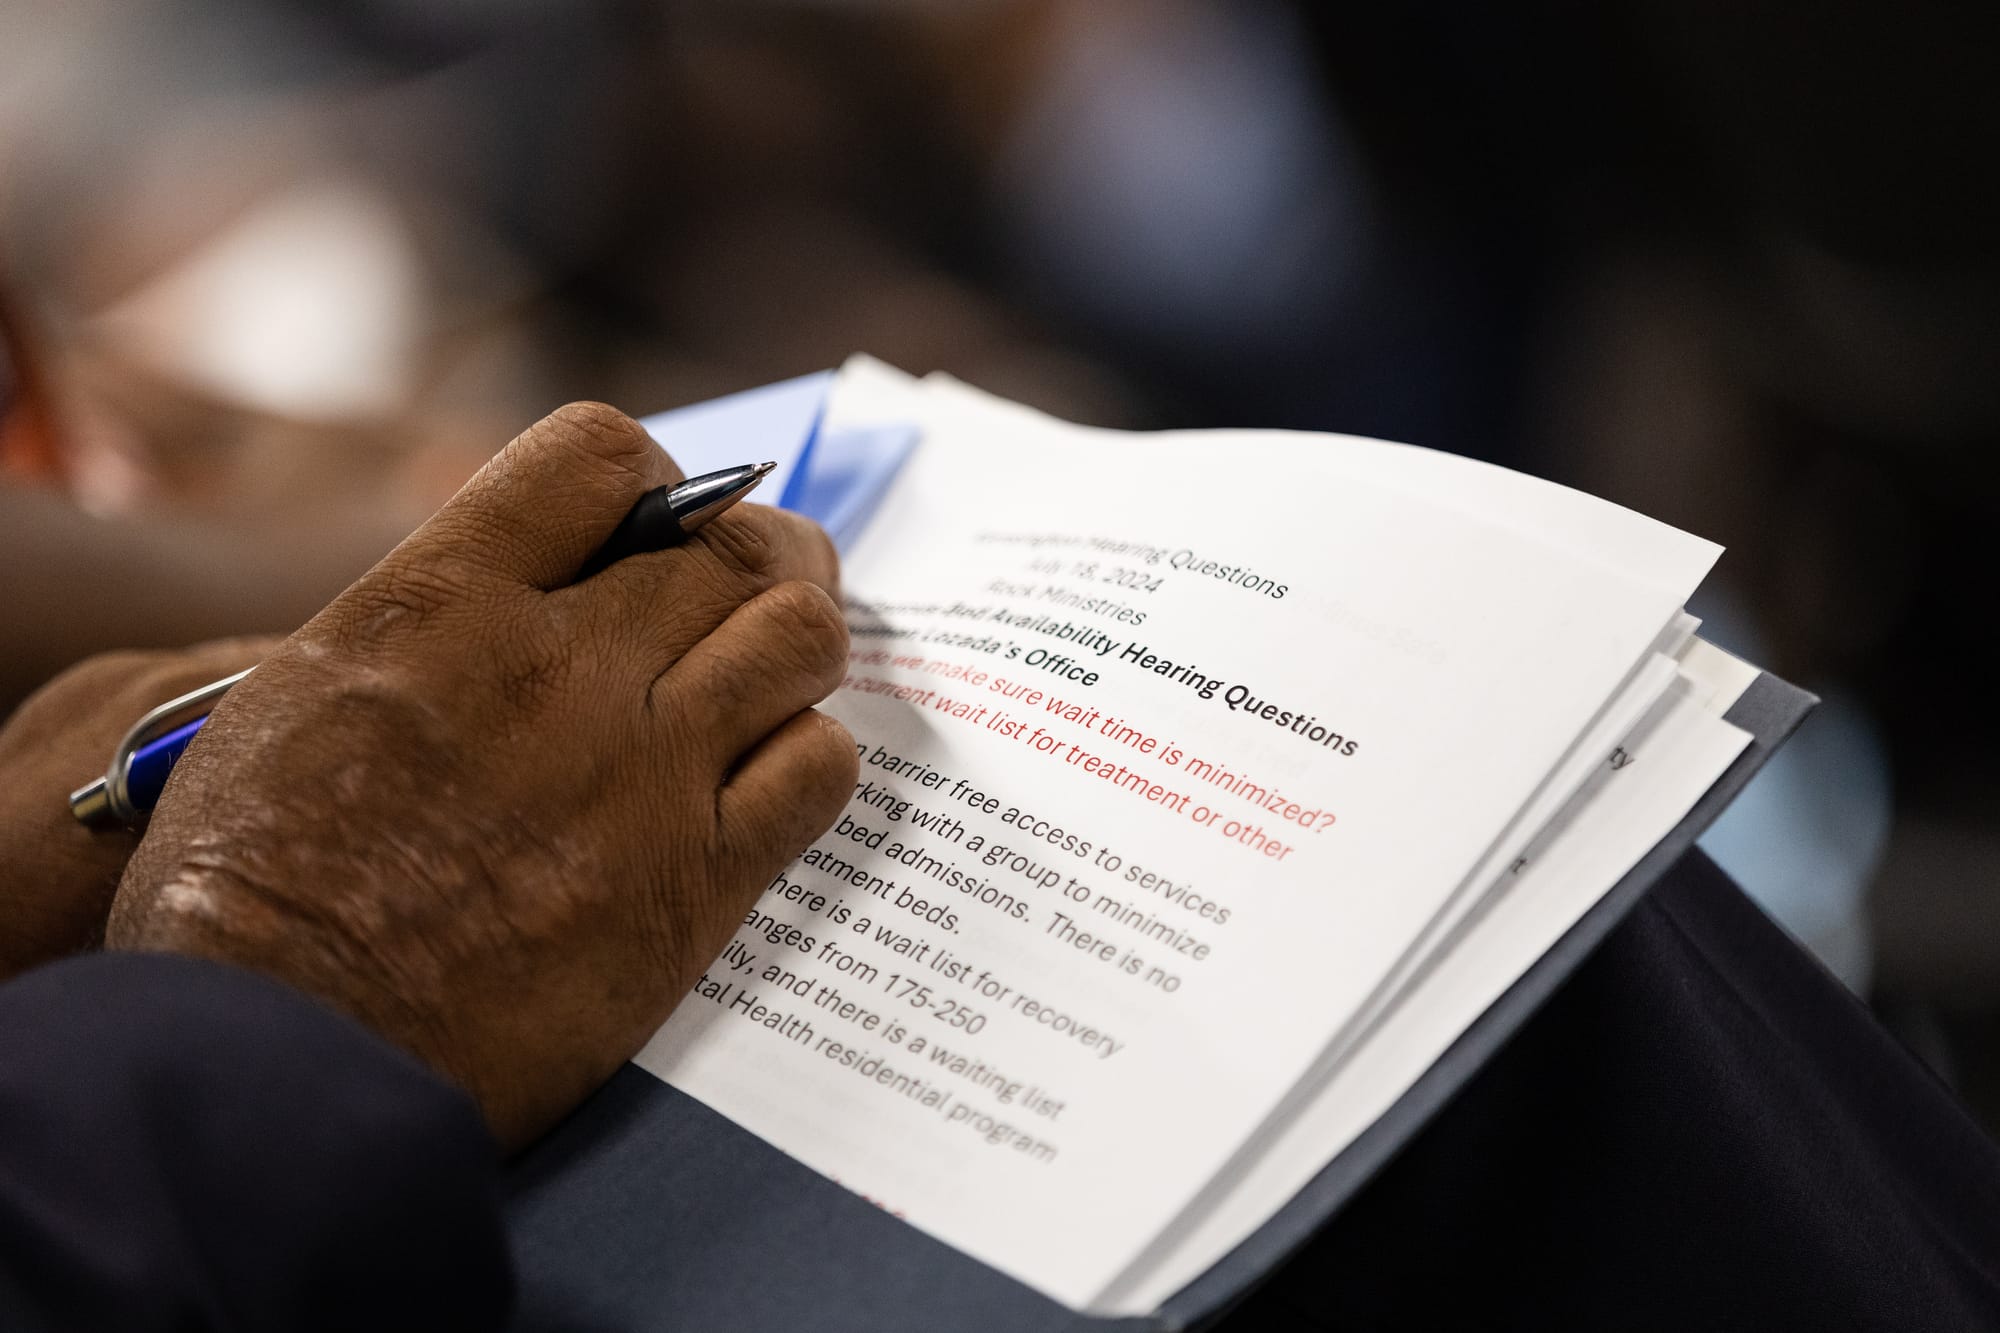 Hearing Questions
July 18, 2024
Rock Ministries
Bed Availability Hearing Questions
Lozada's Office
do we make sure wait time is minimized?
current wait list for treatment or other
barrier free access to services
rking with a group to minimize
bed admissions. There is no
eatment beds.
here is a wait list for recovery
anges from 175-250
ily, and there is a waiting list
tal Health residential program
ty
t